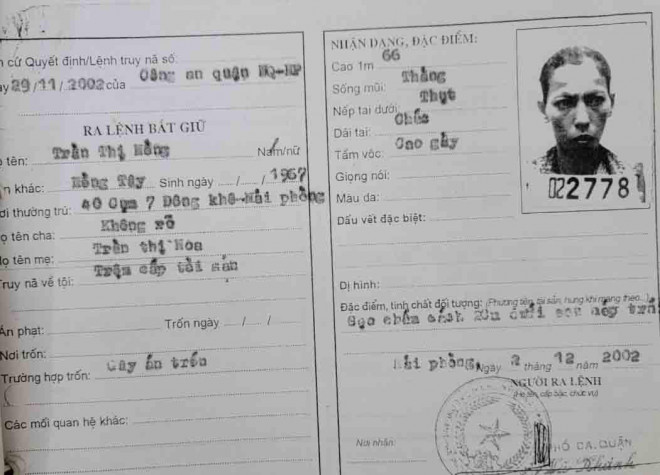 cứ Quyết định/Lệnh truy nã số:
29/11/2002 của Công an quận NQ-HP
RA LỆNH BẮT GIỮ
tên: Trần Thị Hồng Nam/nữ
khác: Hồng Tây Sinh ngày / / 1967
thường trú: 40 Cụm 7 Đông khê-Hải phòng
tên cha: Không rõ
tên mẹ: Trần thị Hoa
Truy nã về tội: Trộm cắp tài sản
Án phạt: Trốn ngày / /
Nơi trốn:
Trường hợp trốn: Gây án trốn
Các mối quan hệ khác:
NHẬN DẠNG, ĐẶC ĐIỂM:
Cao 1m 66
Sống mũi: Thẳng
Nếp tai dưới: Thụt
Dái tai: Chúc
Tầm vóc: Cao gầy
Giọng nói:
Màu da:
Dấu vết đặc biệt:
Dị hình:
Đặc điểm, tính chất đối tượng: (Phương tiện, tài sản, hung khí mang theo...)
Sẹo chấm cách 2cm đuôi
Hải phòng, Ngày 2 tháng 12 năm 2002
NGƯỜI RA LỆNH
(Họ tên, cấp bậc, chức vụ)
Nơi nhận:
PHÓ CA. QUẬN
022778